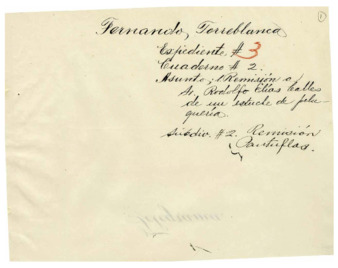 1
Fernando Torreblanca
Expediente # 3
Cuaderno # 2.
Asunto: Remisión a
Sr. Rodolfo Elías Calles
de un estuche de pelu-
quería
subdiv. #2. Remisión
Pantuflas.